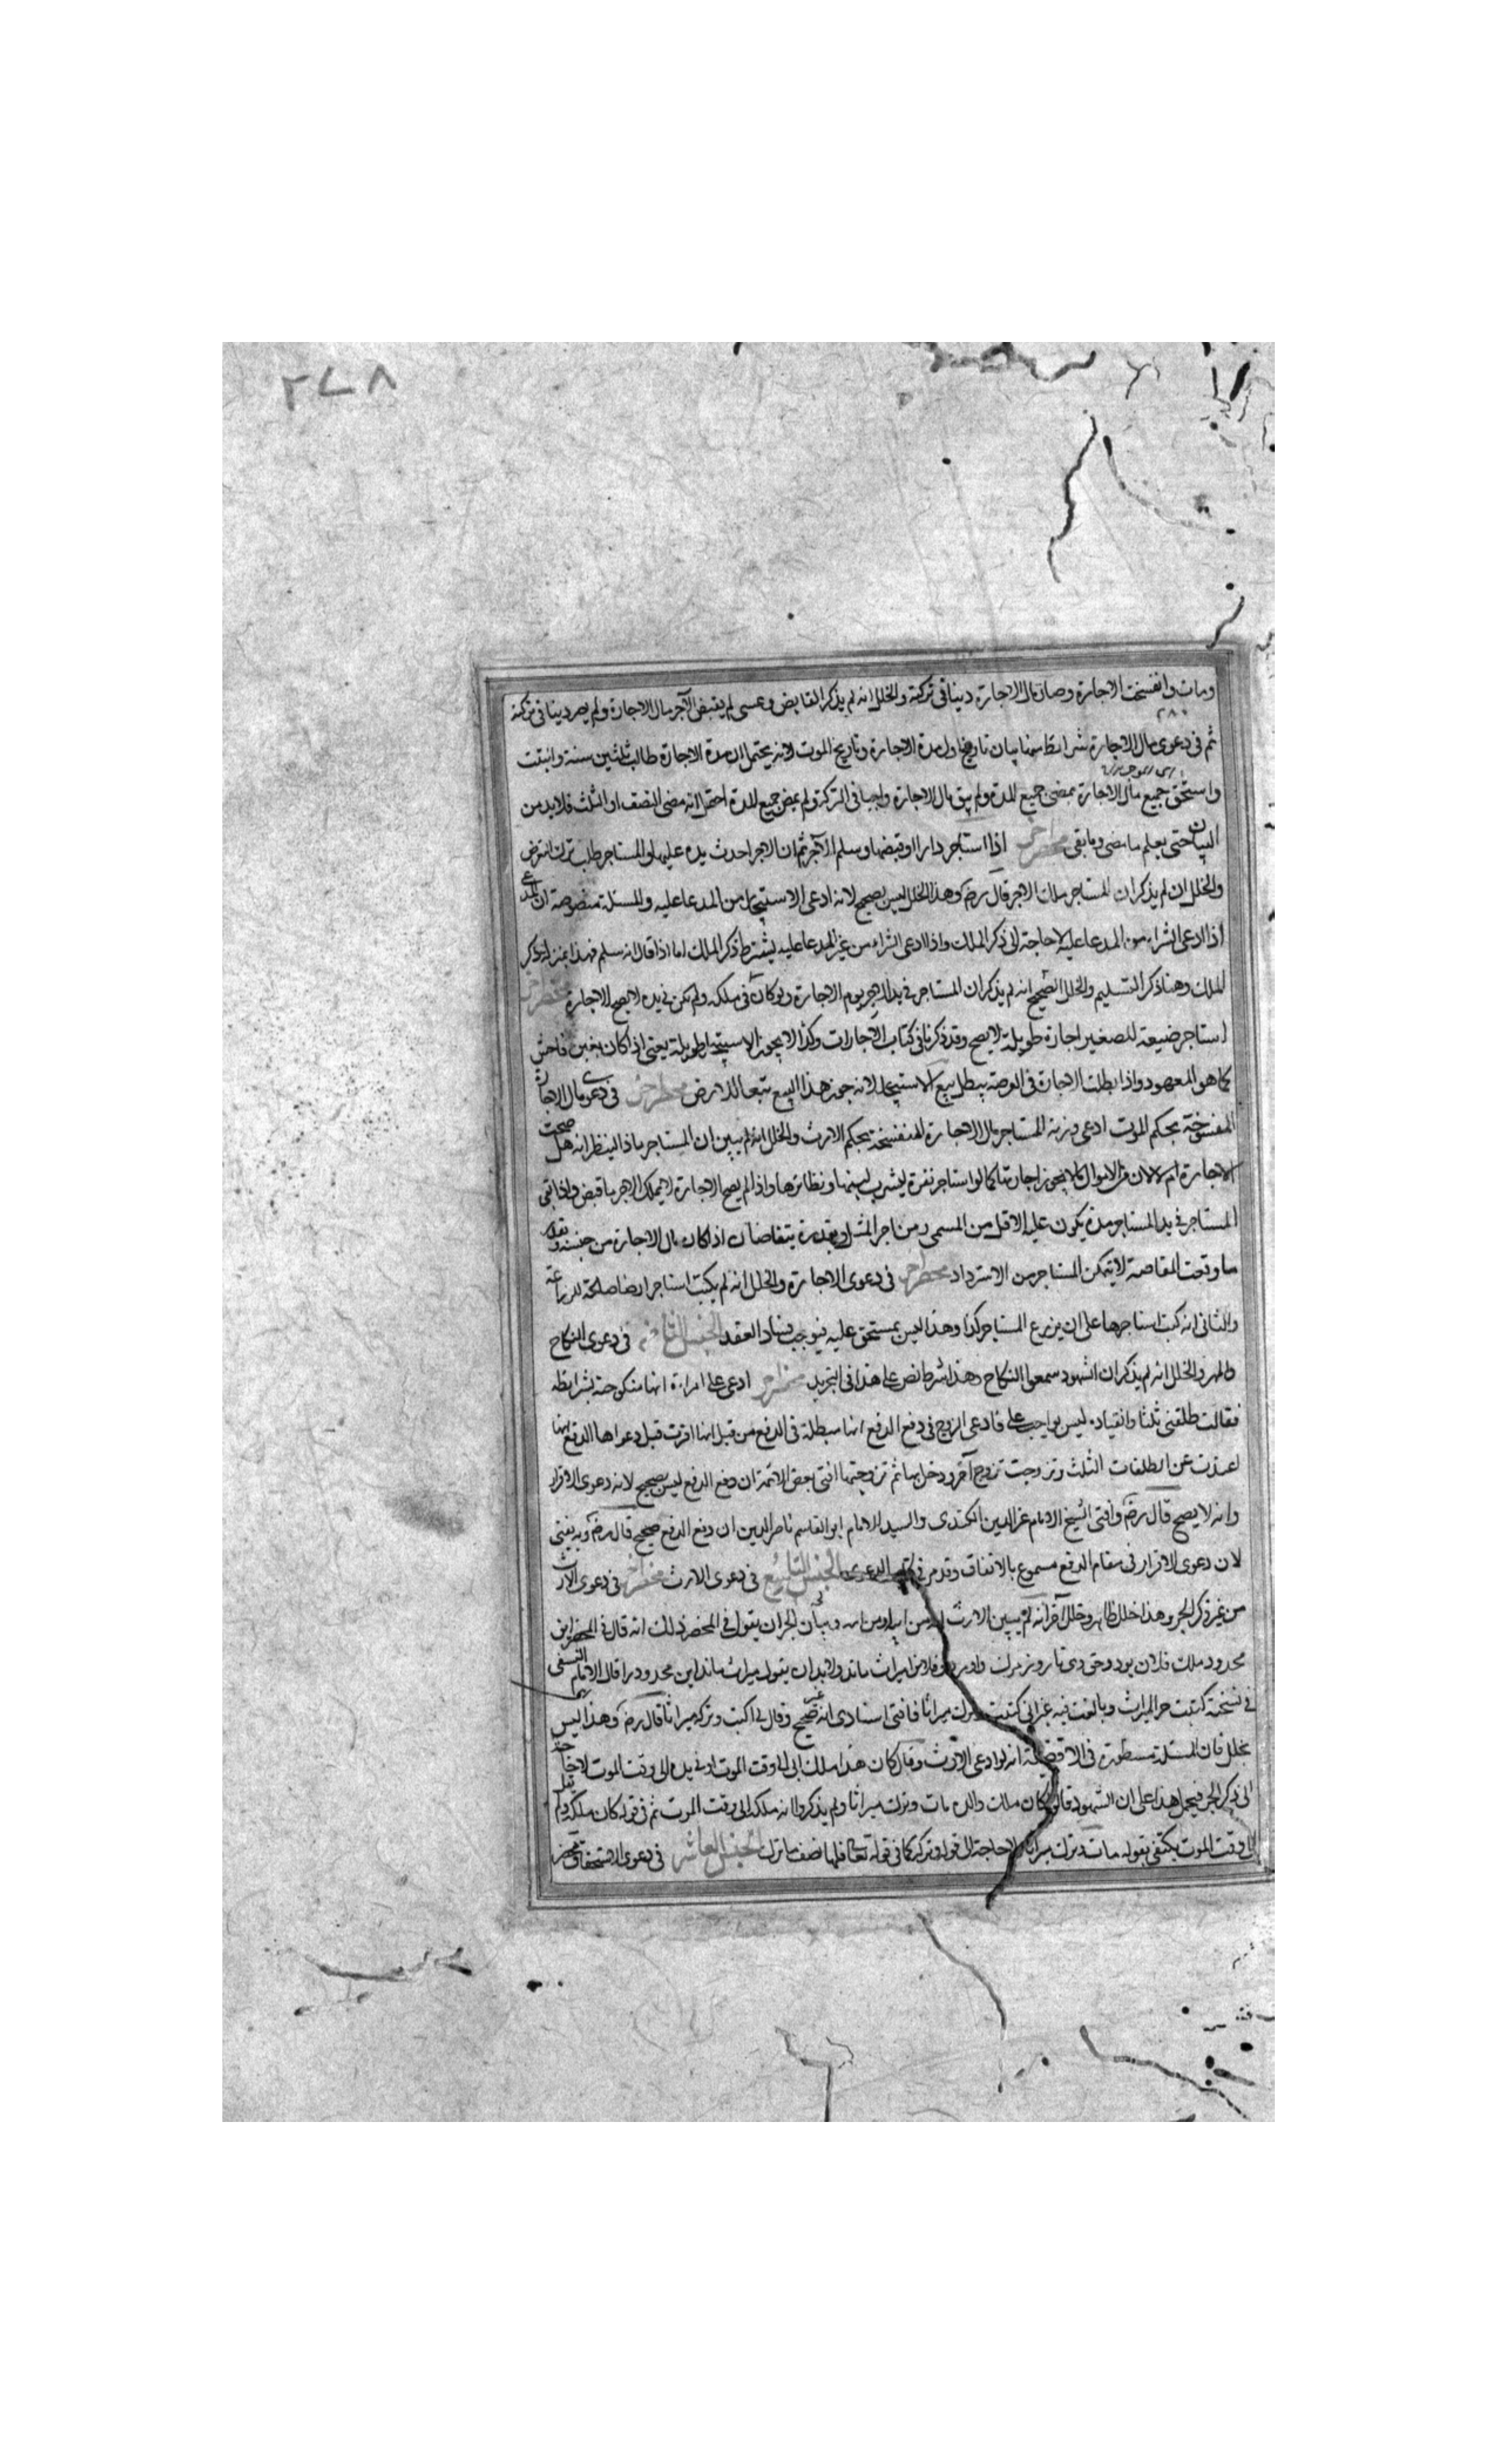 ٢٧٨
ومات وانفسخت الاجارة وصار مال الاجارة دينا في تركته والخلل انه لم يذكر التقابض وعسى لم يقبض الآجر مال الاجارة ولم يصر دينا في تركته
٢٨٠
ثم في دعوى مال الاجارة شرائط منها بيان تاريخ اول مدة الاجارة وتاريخ الموت لانه يحتمل ان مدة الاجارة طالت ثلثين سنة وانتهت
واستحق جميع مال الاجارة بمضي جميع المدة ولم يبق مال الاجارة واجبا في التركة ولم يمض جميع المدة احتمل انه مضى النصف او الثلث فلابد من
البيان حتى يعلم ما مضى وما بقي محضر آخر اذا استاجر دارا وقبضها وسلم الآجر ثم ان الاجر احدث يده عليها والمستاجر طالب ترك التعرض
والخلل ان لم يذكر ان المستاجر ملك الاجر قال رضه وهذا الخلل ليس بصحيح لانه ادعى الاستيجار من المدعا عليه والمسئلة منصوصة ان المدعي
اذا ادعى الشراء من المدعا عليه لا حاجة الى ذكر الملك واذا ادعى الشراء من غير المدعا عليه يشترط ذكر الملك اما اذا قال انه سلم فهذا بمنزلة ذكر
الملك وهنا ذكر التسليم والخلل الصحيح انه لم يذكر ان المستاجر في يد الاجر يوم الاجارة ولو كان في ملكه ولم يكن في يده لا يصح الاجارة محضر آخر
استاجر ضيعة للصغير اجارة طويلة لا يصح وقد ذكرنا في كتاب الاجارات وكذا لا يجوز الاستيجار طويلة يعني اذا كان بغبن فاحش
كما هو المعهود واذا بطلت الاجارة في العرصة يبطل بيع الاستيجار لانه جوز هذا البيع تبعا للارض محضر آخر في دعوى مال الاجارة
المفسوخة بحكم الموت ادعى ورثة المستاجر مال الاجارة المنفسخة بحكم الارث والخلل انه لم يبين ان المستاجر ماذا لينظر انه هل صحت
الاجارة ام لا لان من الاموال ما لا يجوز اجارتها كما لو استاجر بقرة ليشرب لبنها ونظائرها واذا لم يصح الاجارة لا يملك الاجر ما قبض واذا بقي
المستاجر في يد المستاجر مدة يكون عليه الاقل من المسمى ومن اجر المثل وبقدره يتقاصان اذا كان مال الاجارة من جنسه وبقدر
ما وقعت المقاصة لا يتمكن المستاجر من الاسترداد محضر آخر في دعوى الاجارة والخلل انه لم يكتب استاجر ارضا صالحة للزراعة
والثاني انه كتب استاجرها على ان يزرع المستاجر كذا وهذا ليس بمستحق عليه فيوجب فساد العقد الجنس الثامن في دعوى النكاح
والمهر والخلل انه لم يذكر ان الشهود سمعوا النكاح وهذا شرط نص على هذا في التجريد محضر آخر ادعى على امراة انها منكوحته بشرائطه
فقالت طلقني ثلثا وانقياده ليس بواجب علي فادعى الزوج في دفع الدفع انها مبطلة في الدفع من قبل انها اقرت قبل دعواها الدفع انها
اعتدت عن الطلقات الثلث وتزوجت تزوج آخر ودخل بها ثم تزوجتها افتى بعض الائمة ان دفع الدفع ليس بصحيح لانه دعوى الاقرار
وانه لا يصح قال رضه وافتى الشيخ الامام عز الدين الكندى والسيد الامام ابو القاسم ناصر الدين ان دفع الدفع صحيح قال رضه وبه يفتى
لان دعوى الاقرار في مقام الدفع مسموع بالاتفاق وقد مر في كتاب الدعوى الجنس التاسع في دعوى الارث محضر آخر في دعوى الارث
من غير ذكر الجر وهذا خلل ظاهر وخلل آخر انه لم يبين الارث له من ابيه او من امه وبيان الجر ان يقول في المحضر ذلك انه قال في المحضر اين
محدود ملك فلان بود وحق وى تا روز مرك فلان را ميراث ماند ولابد ان يقول ميراث ماند اين محدود را قال الامام النسفي
في نسخة كتبت جر الميراث وبالغت فيه غير اني كتبت وترك ميراثا فافتى استادى انه غير صحيح وقال لي اكتب وتركه ميراثا قال رضه وهذا ليس
بخلل فان المسئلة مسطورة في الاقضية انه لو ادعى الارث وقال كان هذا ملك ابي الى وقت الموت او في يده الى وقت الموت لا حاجة
الى ذكر الجر فيحمل هذا على ان الشهود قالوا كان ملك والده مات وترك ميراثا ولم يذكروا انه ملكه الى وقت الموت ثم في قوله كان ملكه
الى وقت الموت يكتفى بقوله مات وترك ميراثا ولا حاجة الى قوله وتركه كما في قوله تعالى فلها نصف ما ترك الجنس العاشر في دعوى الاستحقاق محضر